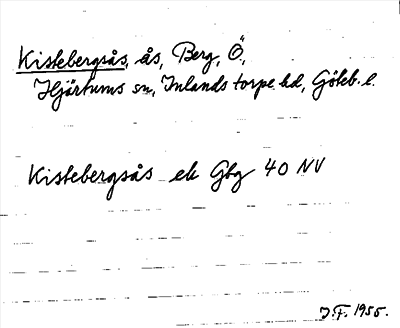 Kistebergsås, ås, Berg, Ö,
Hjärtums sn, Inlands torpe hd, Göteb. l.
Kistebergsås ek Gbg 40 NV
J.F. 1955.